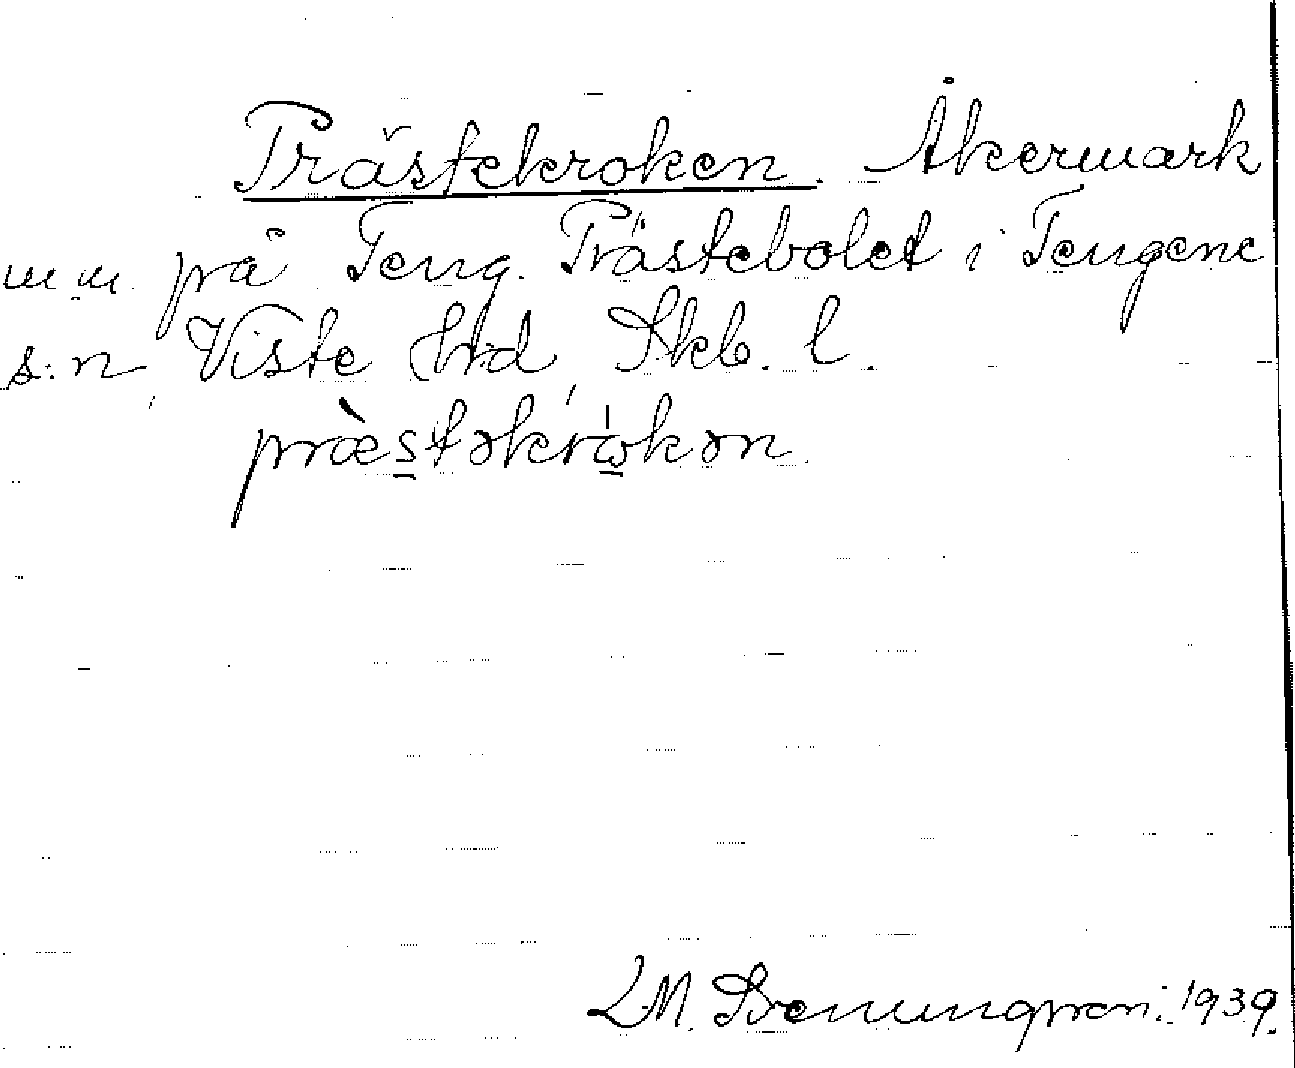 Prästekroken. Åkermark
m.m. på Teng. Prästebolet i Tengene
s:n, Viste Hrd, Skb. l.
præstəkrokən.
L.M. Svenungsson. 1939.